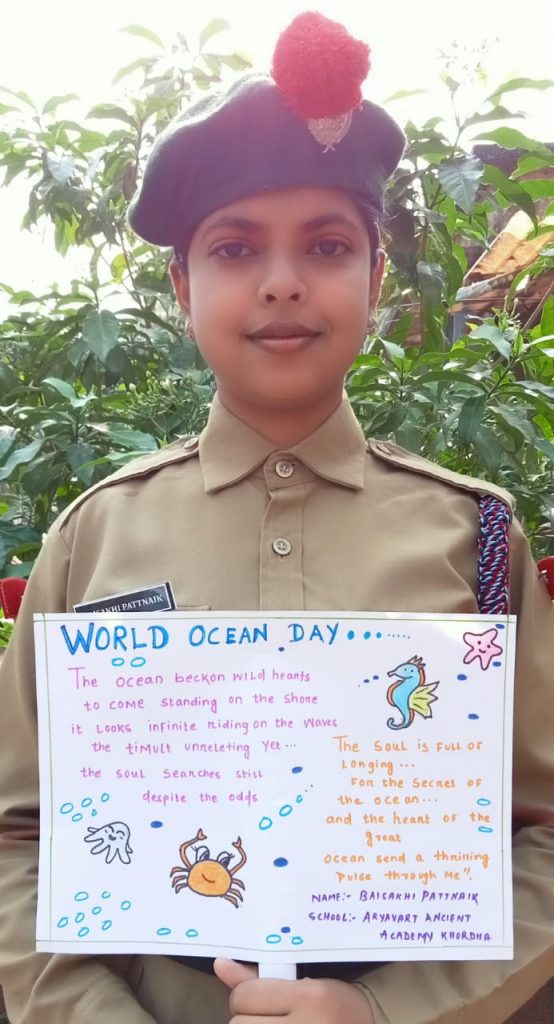 BAISAKHI PATTNAIK
WORLD OCEAN DAY........
The ocean beckon wild hearts
to come standing on the shone
it looks infinite riding on the waves
the timult unreleting yet...
the soul searches still
despite the odds
The soul is full of
longing...
For the secret of
the ocean...
and the heart of the
great
ocean send a thrilling
pulse through me".
NAME:- BAISAKHI PATTNAIK
SCHOOL:- ARYAVART ANCIENT
ACADEMY KHORDHA